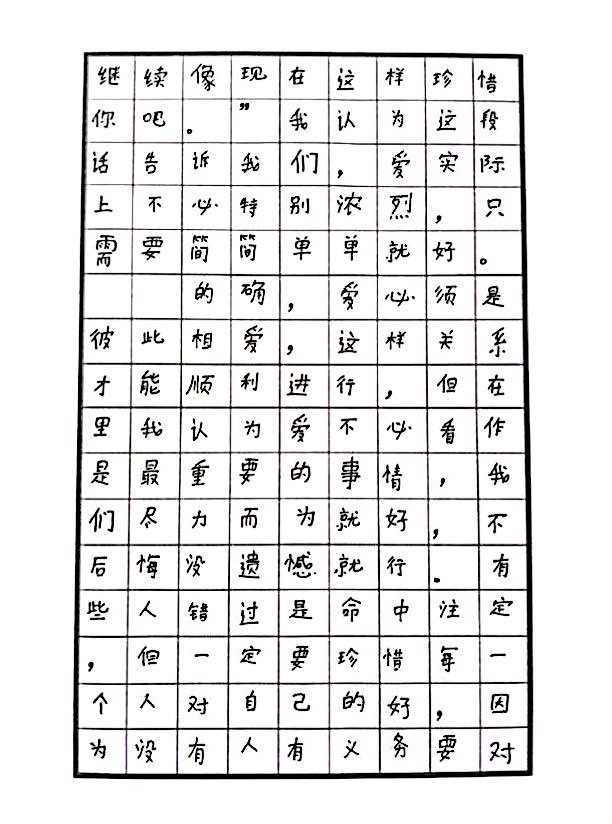 继续像现在这样珍惜
你吧。”我认为这段
话告诉我们，爱实际
上不必特别浓烈，只
需要简简单单就好。
的确，爱必须是
彼此相爱，这样关系
才能顺利进行，但在
里我认为爱不必看作
是最重要的事情，我
们尽力而为就好，不
后悔没遗憾就行。有
些人错过是命中注定
，但一定要珍惜每一
个人对自己的好，因
为没有人有义务要对